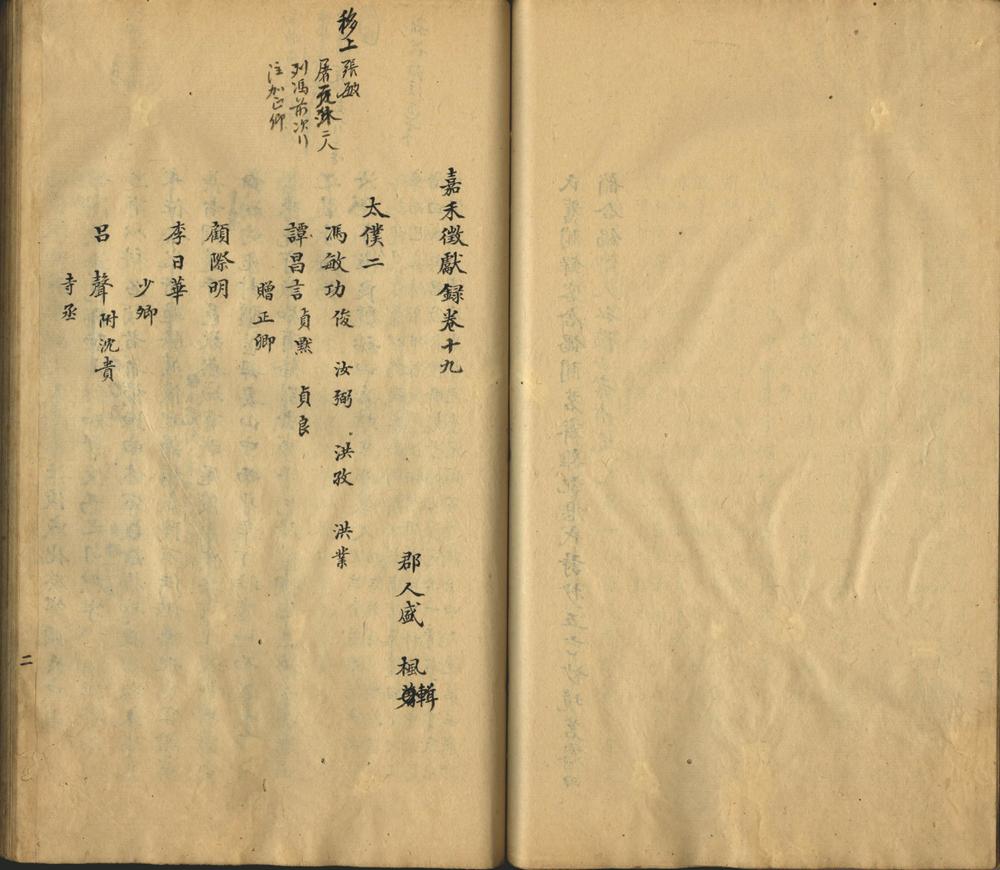 嘉禾徵獻録卷十九
郡人盛 楓輯
太僕二
馮敏功 俊 汝弼 洪孜 洪業
譚昌言 貞默 貞良
贈正卿
顧際明
李日華
少卿
呂 聲 附沈貴
寺丞
移上張敏
屠 二人
列馮前次
注加正卿
二